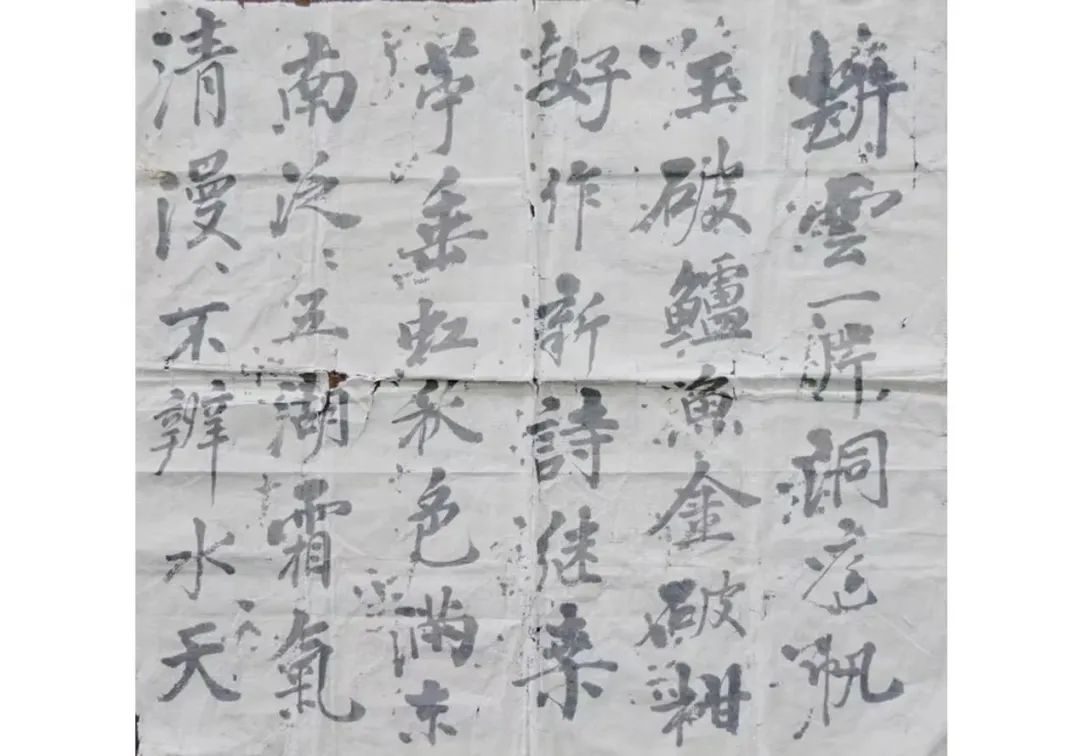 斷雲一片洞庭帆
玉破鱸魚金破柑
好作新詩继桒
苧垂虹秋色滿东
南泛〻五湖霜氣
清漫〻不辨水天